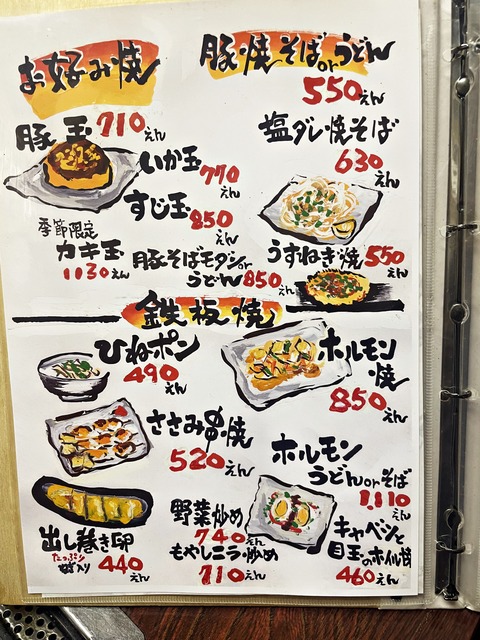 お好み焼
豚玉 710えん
いか玉 770えん
すじ玉 850えん
季節限定
カキ玉
1130えん
豚そばモダンor
うどん 850えん
豚焼そばorうどん
550えん
塩ダレ焼そば
630えん
うすねぎ焼 550えん
鉄板焼
ひねポン
490えん
ホルモン
焼
850えん
ささみ串焼
520えん
ホルモン
うどんorそば
1,110えん
出し巻き卵
たっぷり
ねぎ入り 440えん
野菜炒め
740えん
もやしニラ炒め
710えん
キャベツと
目玉のホイル焼
460えん